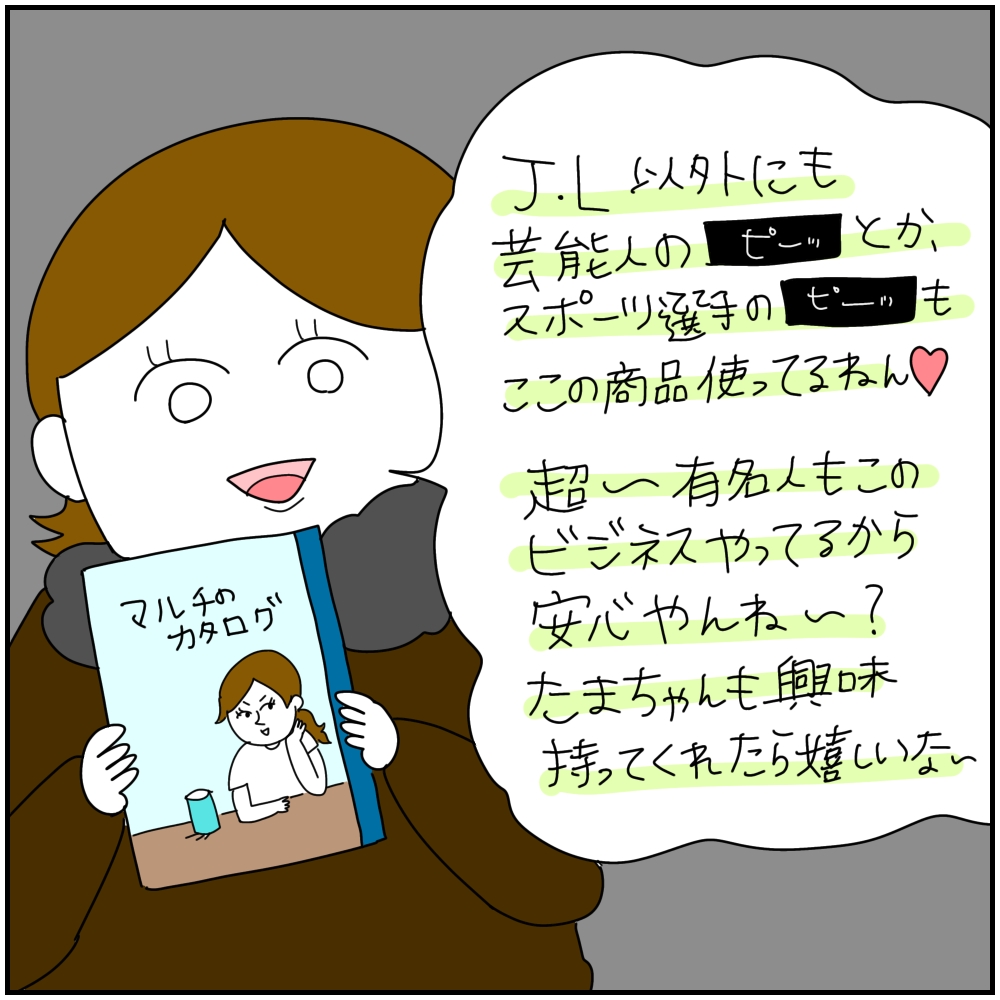 J.L 以外にも
芸能人の ピーッ とか、
スポーツ選手の ピーッ も
ここの商品使ってるねん♥
超〜有名人もこの
ビジネスやってるから
安心やんね〜?
たまちゃんも興味
持ってくれたら嬉しいな〜
マルチの
カタログ